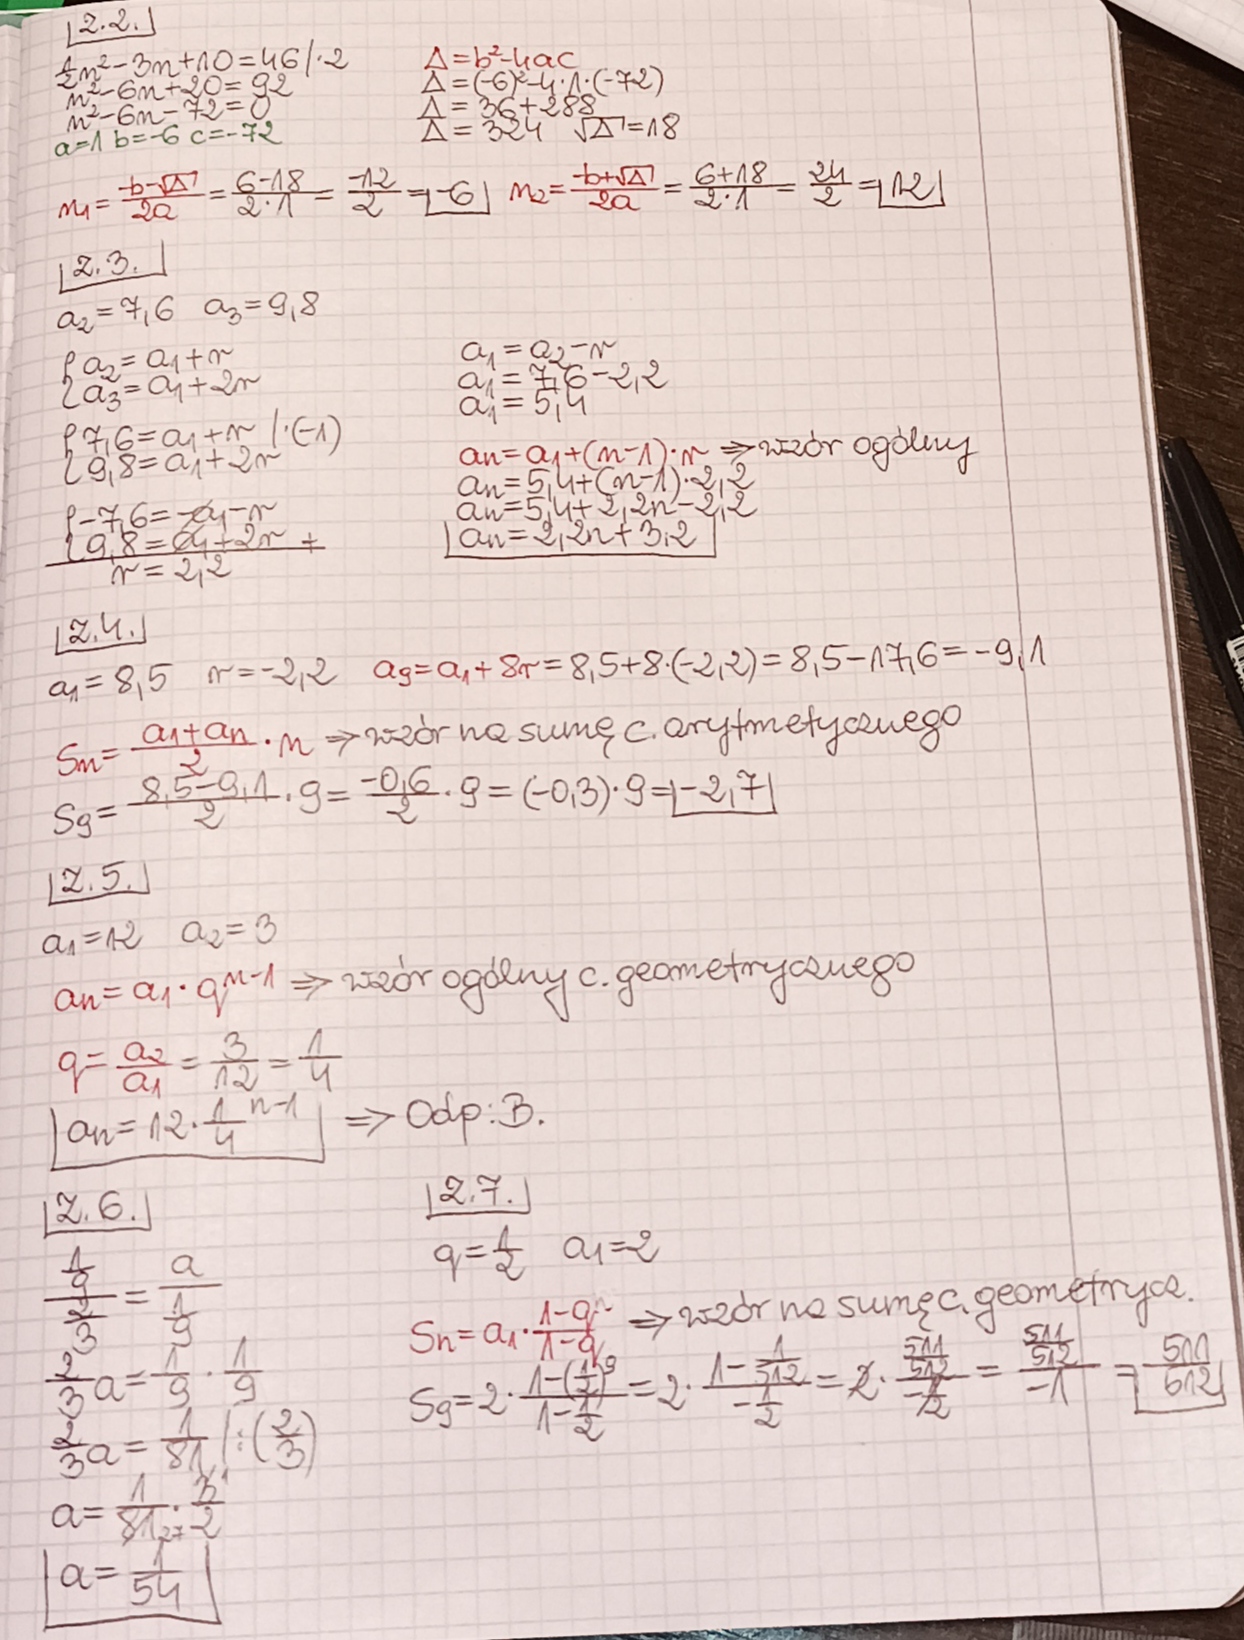 Z.2.
1/2n²-3n+10=46/·2
n²-6n+20=92
n²-6n-72=0
a=1 b=-6 c=-72
Δ=b²-4ac
Δ=(-6)²-4·1·(-72)
Δ=36+288
Δ=324 √Δ=18
n₁=(-b-√Δ)/2a=(6-18)/(2·1)=-12/2=-6 n₂=(-b+√Δ)/2a=(6+18)/(2·1)=24/2=12
Z.3.
a₂=7,6 a₃=9,8
{a₂=a₁+r
{a₃=a₁+2r
{7,6=a₁+r /·(-1)
{9,8=a₁+2r
{-7,6=-a₁-r
{9,8=a₁+2r +
r=2,2
a₁=a₂-r
a₁=7,6-2,2
a₁=5,4
an=a₁+(n-1)·r ⇒ wzór ogólny
an=5,4+(n-1)·2,2
an=5,4+2,2n-2,2
an=2,2n+3,2
Z.4.
a₁=8,5 r=-2,2 a₉=a₁+8r=8,5+8·(-2,2)=8,5-17,6=-9,1
Sn=(a₁+an)/2·n ⇒ wzór na sumę c. arytmetycznego
S₉=(8,5-9,1)/2·9=-0,6/2·9=(-0,3)·9=-2,7
Z.5.
a₁=12 a₂=3
an=a₁·qⁿ⁻¹ ⇒ wzór ogólny c. geometrycznego
q=a₂/a₁=3/12=1/4
an=12·1/4ⁿ⁻¹ ⇒ Odp: B.
Z.6.
(1/9)/(2/3)=a/(1/9)
2/3a=1/9·1/9
2/3a=1/81 /:(2/3)
a=1/81₂₇·3¹/2
a=1/54
Z.7.
q=1/2 a₁=2
Sn=a₁·(1-qⁿ)/(1-q) ⇒ wzór na sumę c. geometrycz.
S₉=2·(1-(1/2)⁹)/(1-1/2)=2·(1-1/512)/(-1/2)=2·(511/512)/(-1/2)=(511/512)/-1=511/612